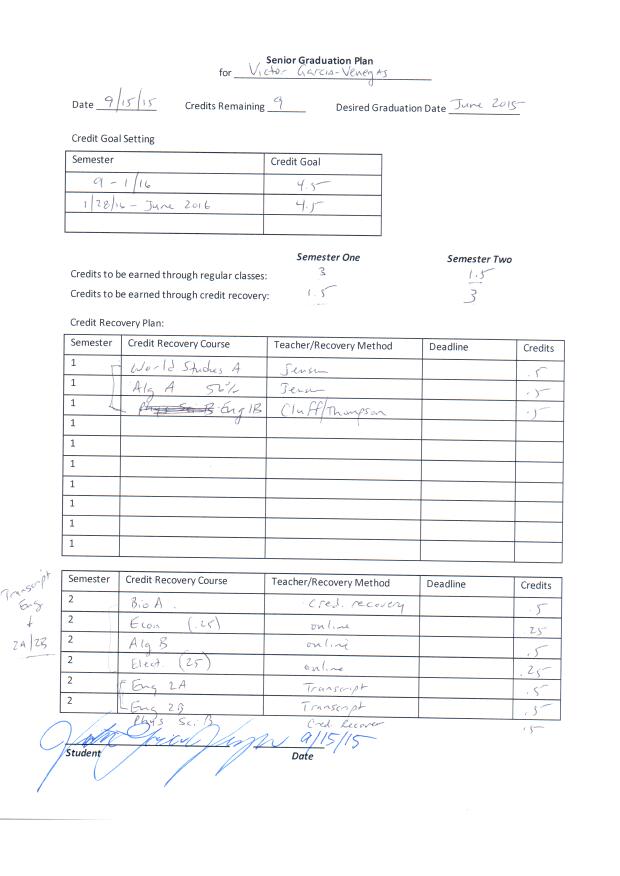 Senior Graduation Plan
for Victor Garcia-Venegas
Date 9/15/15 Credits Remaining 9 Desired Graduation Date June 2015
Credit Goal Setting
Semester Credit Goal
9 - 1/16 4.5
1/28/16 - June 2016 4.5
Semester One Semester Two
Credits to be earned through regular classes: 3 1.5
Credits to be earned through credit recovery: 1.5 3
Credit Recovery Plan:
Semester Credit Recovery Course Teacher/Recovery Method Deadline Credits
1 World Studies A Jensen .5
1 Alg A 50% Jensen .5
1 Phys Sci B Eng 1B Cluff/Thompson .5
1
1
1
1
1
1
1
Semester Credit Recovery Course Teacher/Recovery Method Deadline Credits
2 Bio A Cred. recovery .5
2 Econ (.25) online .25
2 Alg B online .5
2 Elect. (25) online .25
2 Eng 2A Transcript .5
2 Eng 2B Transcript .5
Phys Sci. B Cred Recover .5
Transcript
Eng
↓
2A/2B
9/15/15
Student Date